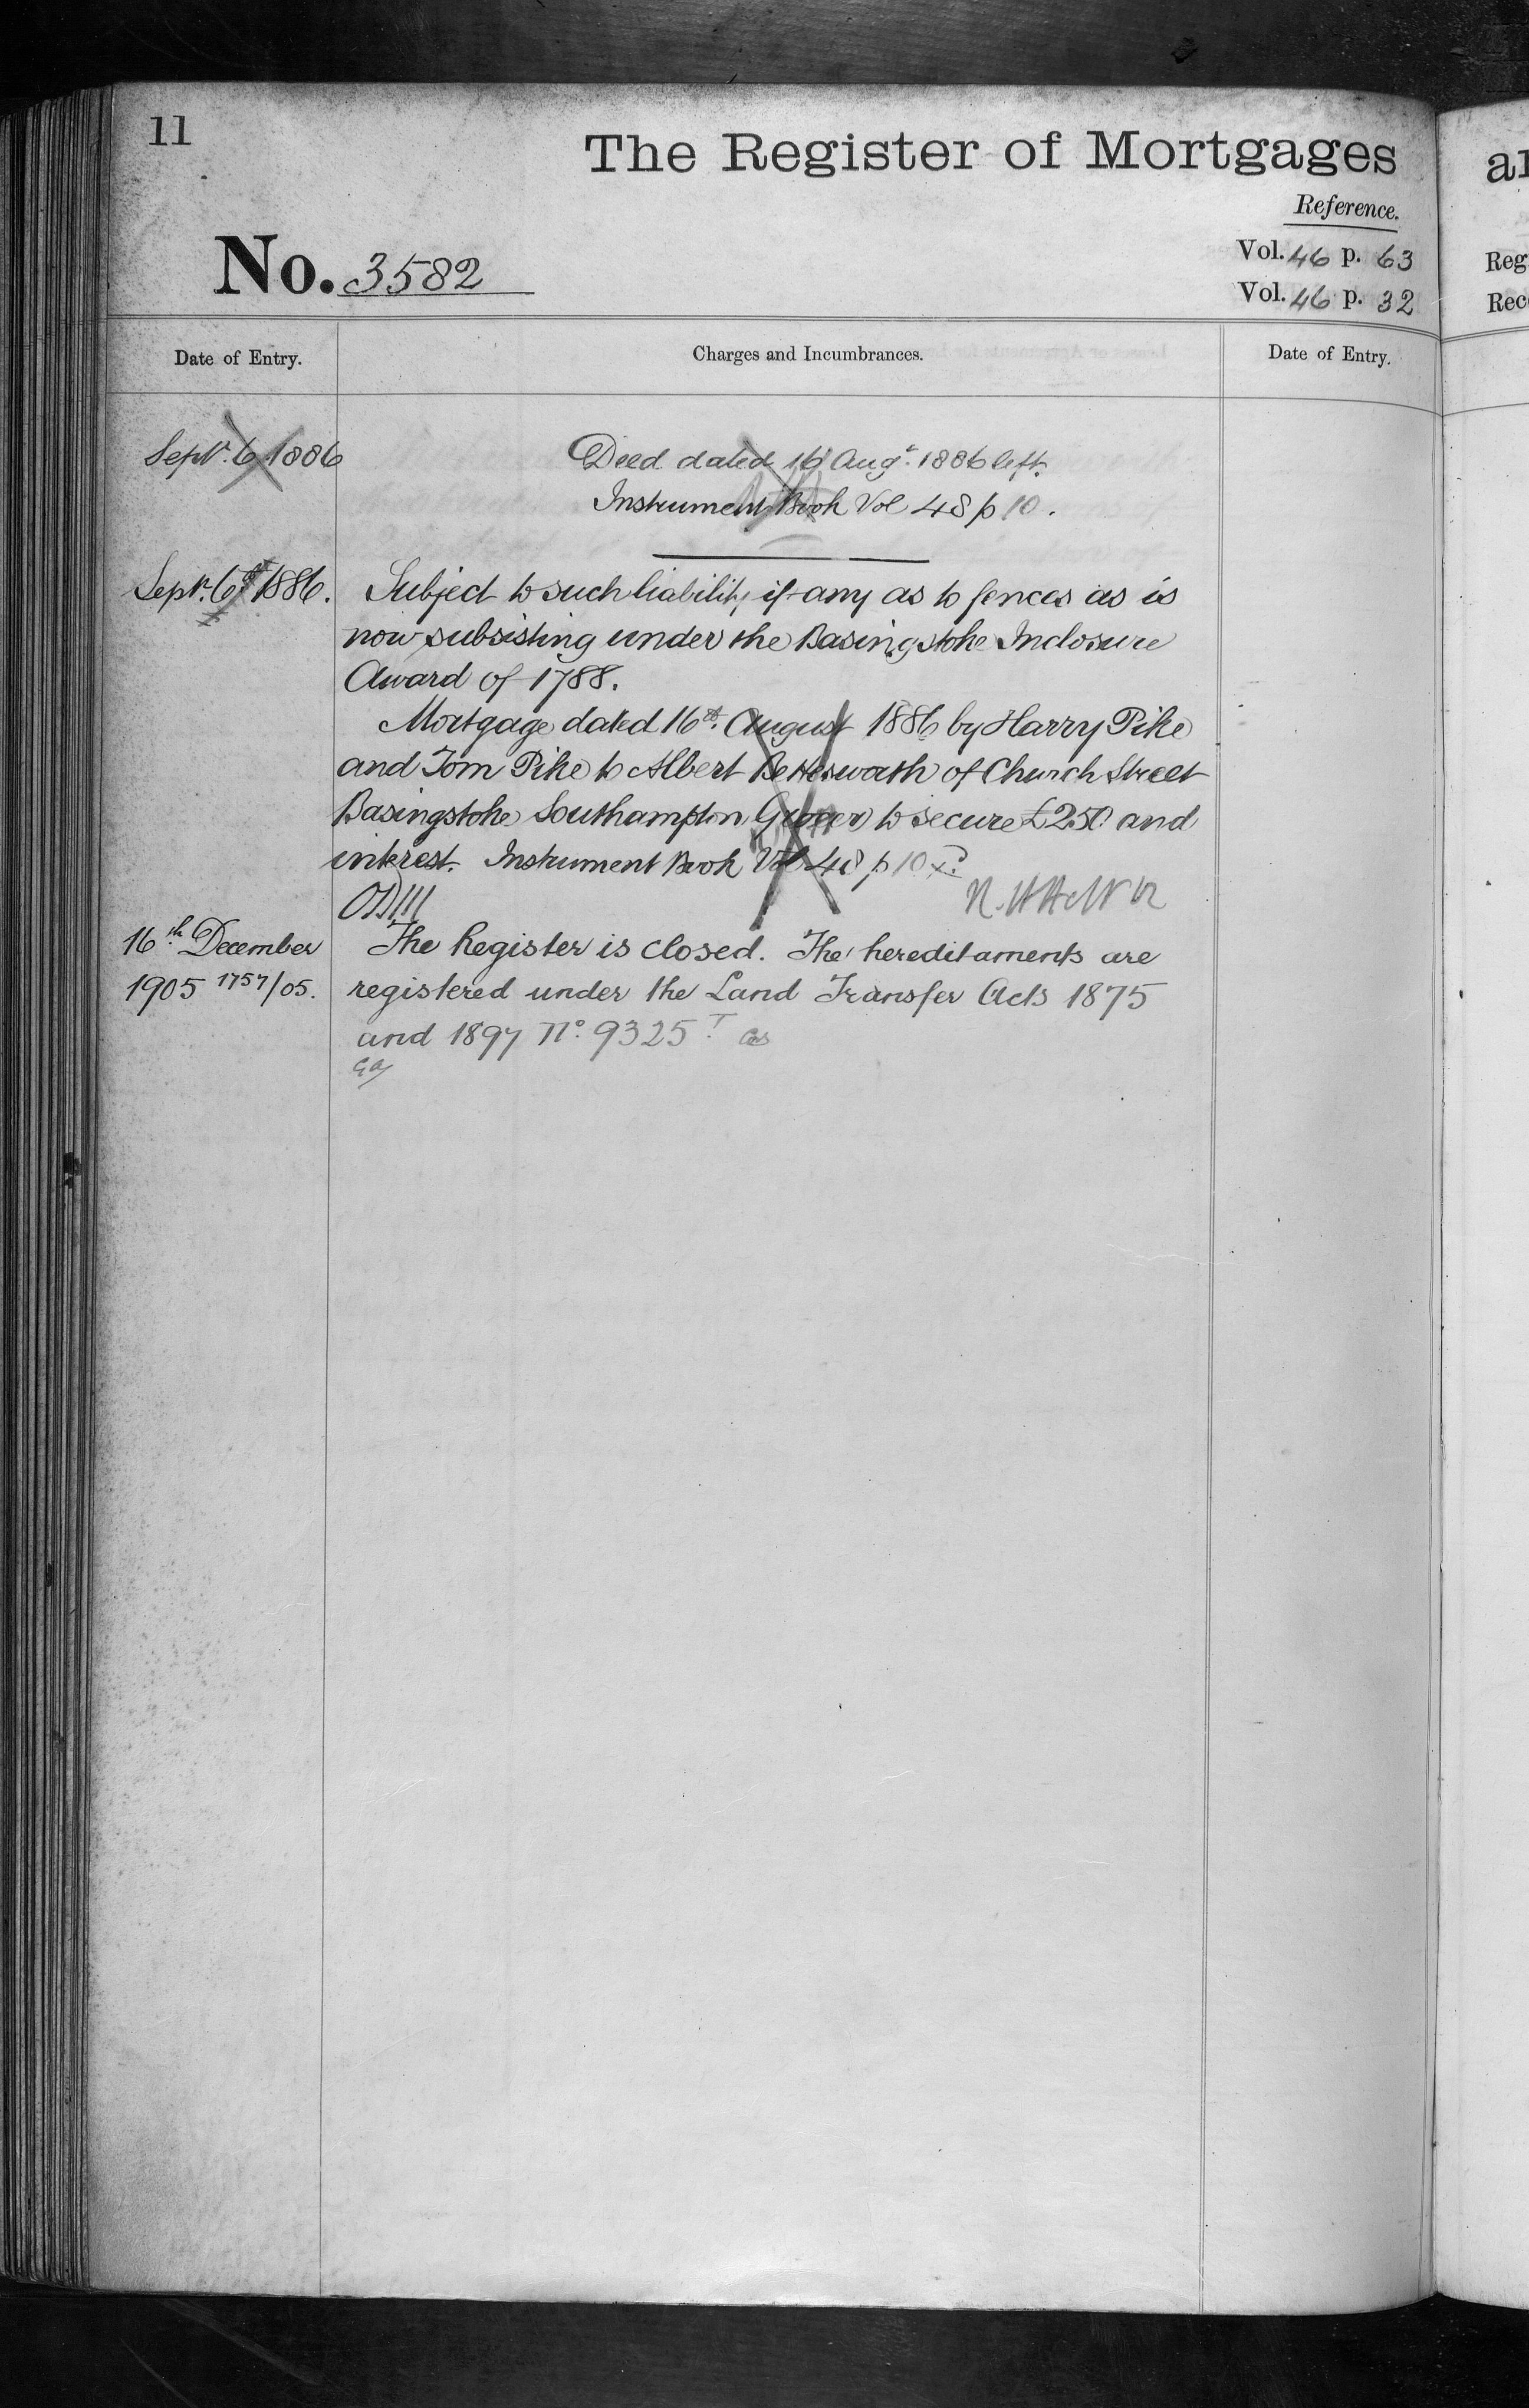 11
The Register of Mortgages
Reference.
No. 3582
Vol. 46 p. 63
Vol. 46 p. 32
Date of Entry.
Charges and Incumbrances.
Date of Entry.
Septr. 6 1886
Deed dated 16 Augt. 1886 left.
Instrument Book Vol 48 p 10.
Septr. 6th 1886.
Subject to such liability if any as to fences as is
now subsisting under the Basingstoke Inclosure
Award of 1788.
Mortgage dated 16th. August 1886 by Harry Pike
and Tom Pike to Albert Bettesworth of Church Street
Basingstoke Southampton Grocer to secure £250 and
interest. Instrument Book Vol 48 p 10
16th December
1905 1757/05.
The Register is closed. The hereditaments are
registered under the Land Transfer Acts 1875
and 1897 No. 9325
al
Reg
Rec